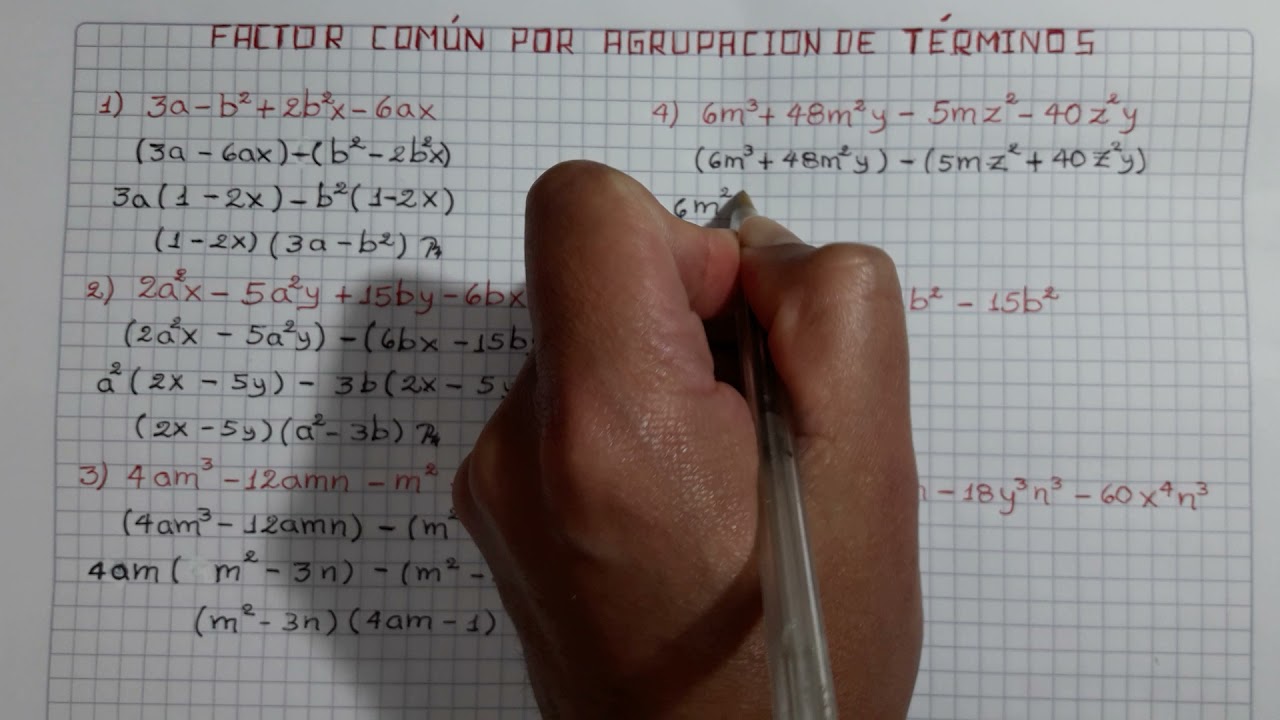 FACTOR COMÚN POR AGRUPACION DE TÉRMINOS
1) 3a - b² + 2b²x - 6ax
(3a - 6ax) - (b² - 2b²x)
3a(1 - 2x) - b²(1-2x)
(1-2x)(3a-b²)
2) 2a²x - 5a²y + 15by - 6bx
(2a²x - 5a²y) - (6bx - 15b
a²(2x - 5y) - 3b(2x - 5
(2x-5y)(a²-3b)
3) 4am³ - 12amn - m²
(4am³ - 12amn) - (m²
4am( m² - 3n) - (m² -
(m²-3n)(4am-1)
4) 6m³ + 48m²y - 5mz² - 40z²y
(6m³ + 48m²y) - (5mz² + 40z²y)
6m²
b² - 15b²
- 18y³n³ - 60x⁴n³